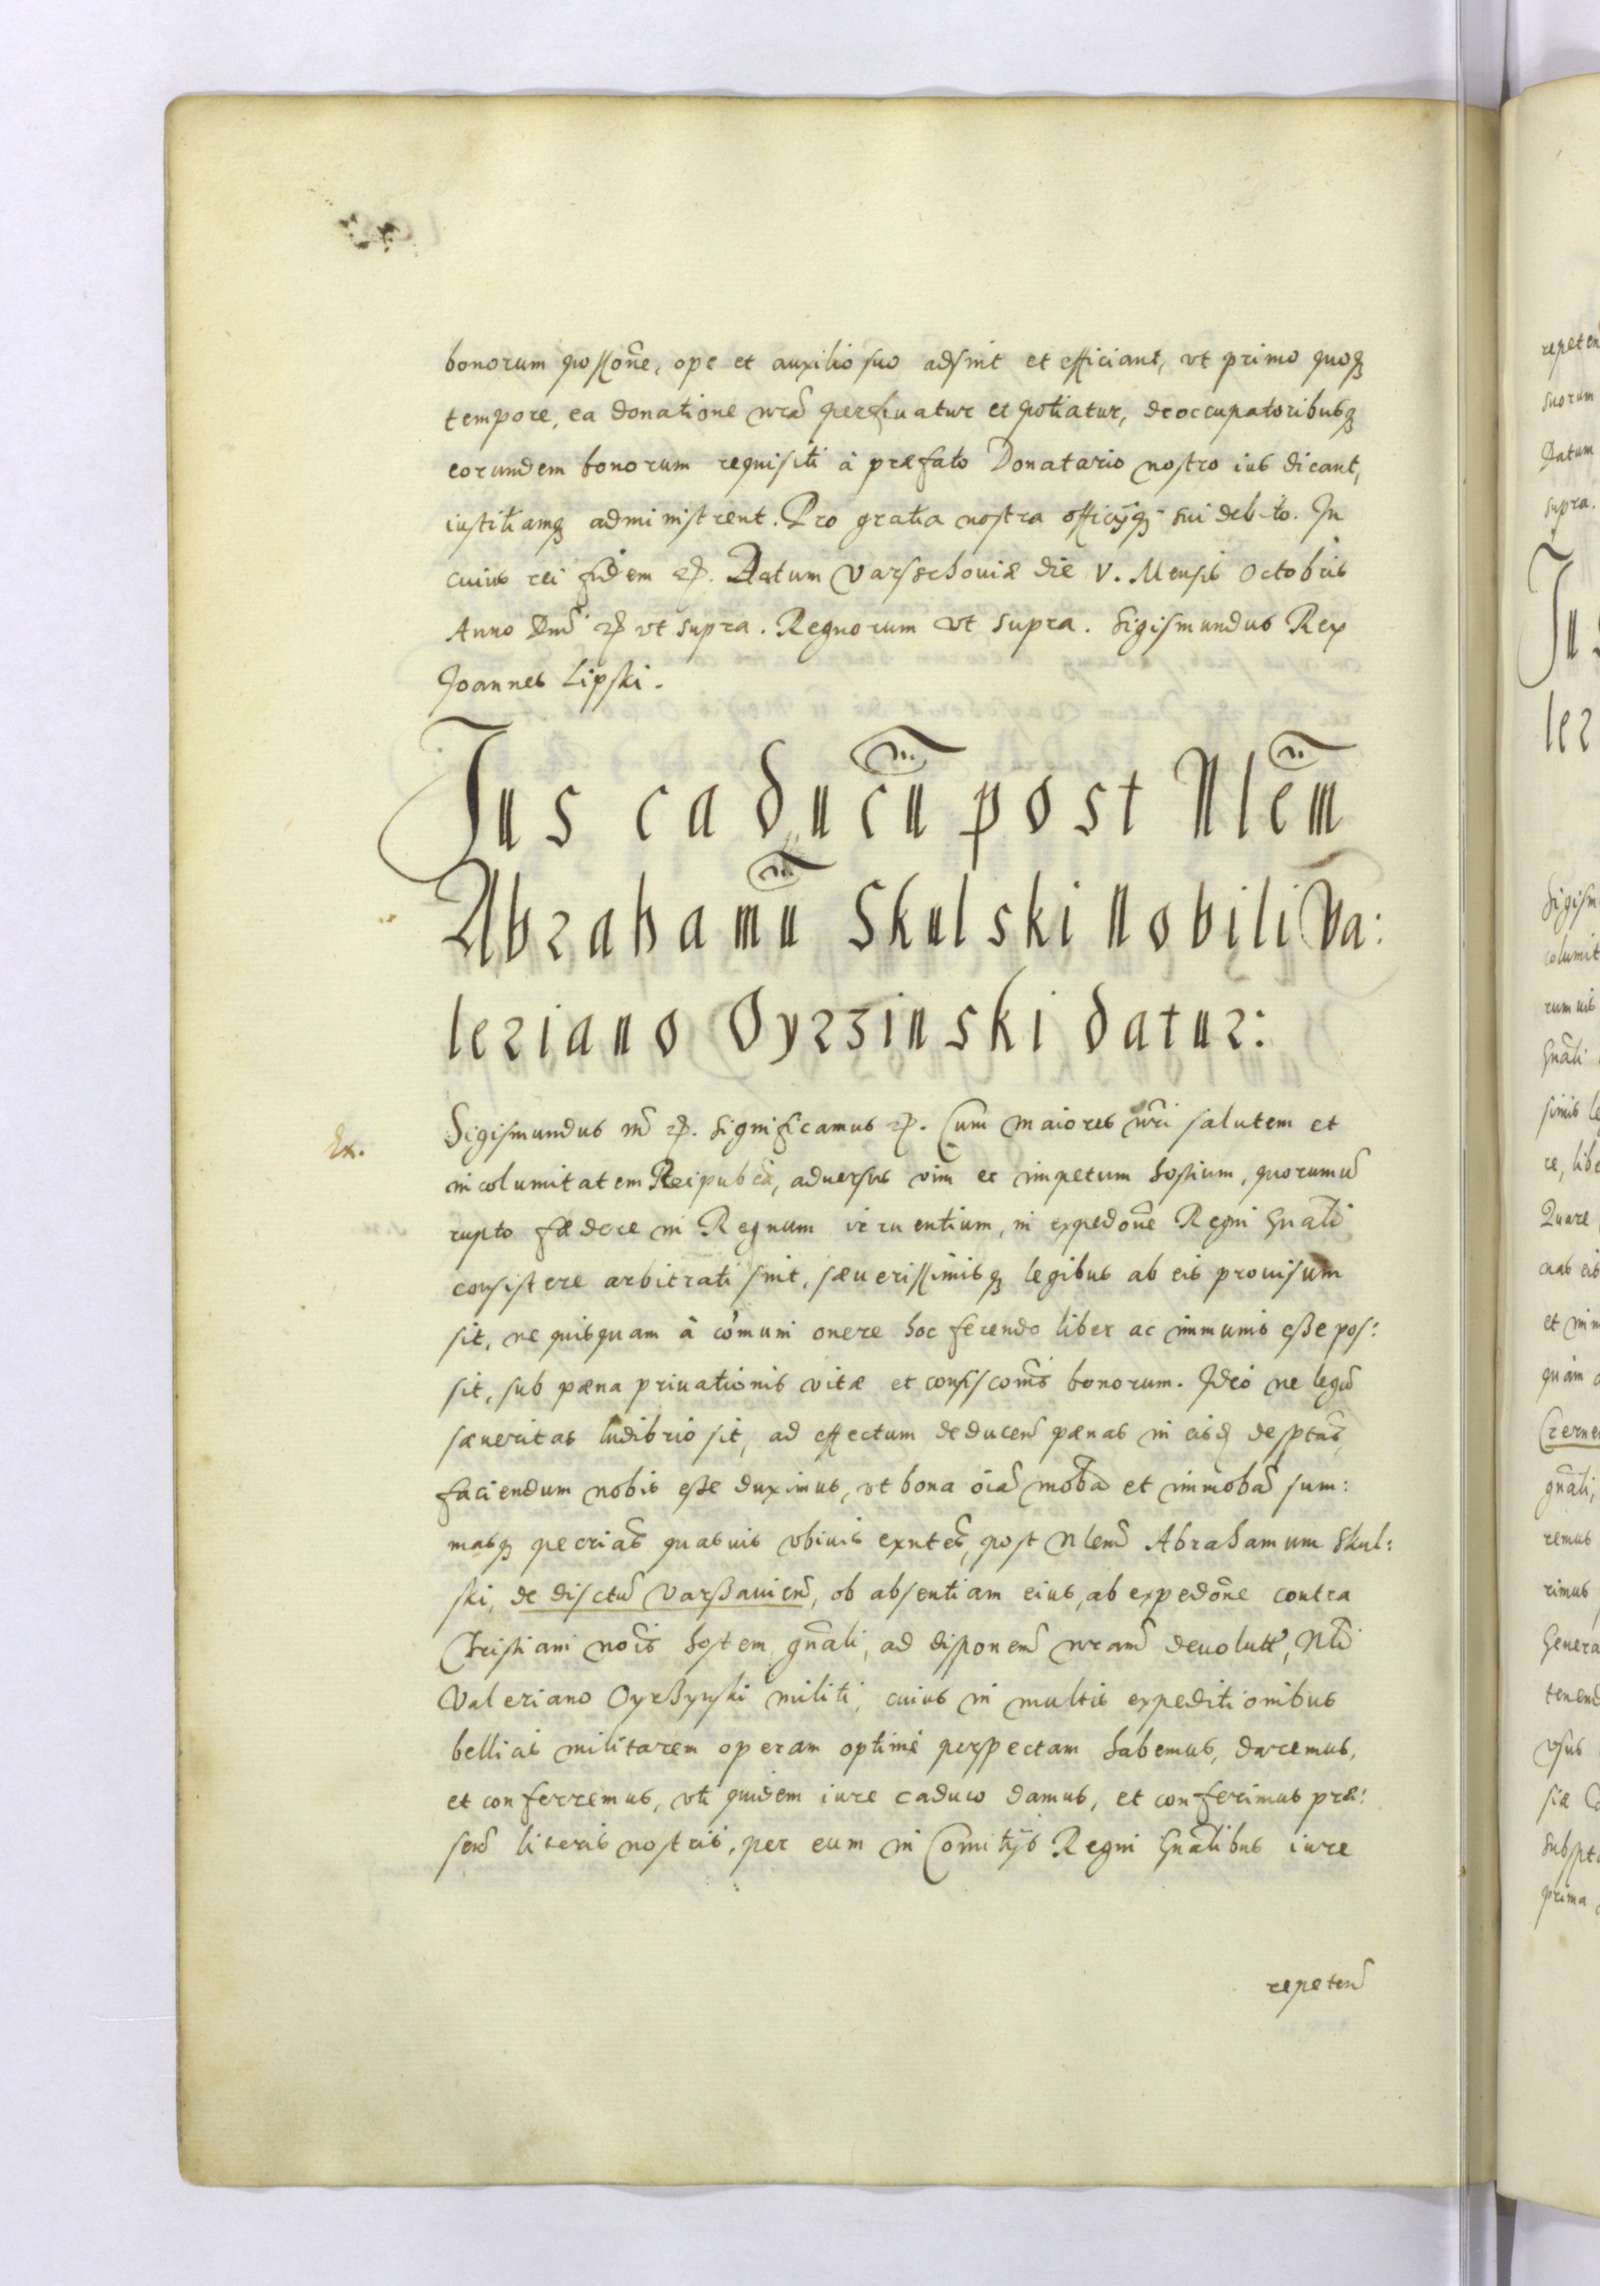 bonorum possõne, ope et auxilio suo adsint et efficiant, vt primo quoqȝ
tempore, ea donatione nrã perfruatur et potiatur, deoccupatoribusqȝ
eorundem bonorum requisiti à præfato Donatario nostro ius dicant,
iustitiamqȝ administrent. Pro gratia nostra officijqȝ sui debito. In
cuius rei fidem etc. Datum Varschouiæ die V. Mensis Octobris
Anno Dnĩ etc vt supra. Regnorum vt supra. Sigismundus Rex
Joannes Lipski.
Jus caducũ post Nlẽm
Abrahamũ Skulski Nobili Va:
leriano Oyrzinski datur:
Ex.
Sigismundus III etc. Significamus etc. Cum maiores nrĩ salutem et
incolumitatem Reipubcæ, aduersus vim et impetum hostium, quorumũ
rupto fædere in Regnum irruentium, in expedõne Regni Gnãli
consistere arbitrati sint, sæuerissimisqȝ legibus ab eis prouisum
sit, ne quisquam à cõmuni onere hoc ferendo liber ac immunis esse pos:
sit, sub pæna priuationis vitæ et confiscõnis bonorum. Ideò ne legũ
sæueritas ludibrio sit, ad effectum deducenᷤ pænas in eisd̃ desptãs,
faciendum nobis esse duximus, vt bona oĩa mobᷤa et immobᷤa sum:
masqȝ pecriãs quasuis vbiuis exñtes, post Nlem̃ Abrahamum Skul:
ski, de disctũ Varßauien̄, ob absentiam eius, ab expedõne contra
Christiani noĩs hostem gnãli, ad disponen̄ nram̃ deuolutᷤ, Nli
Valeriano Oyrßynski militi, cuius in multis expeditionibus
bellicis militarem operam optimè perspectam habemus, daremus,
et conferremus, vti quidem iure caduco damus, et conferimus præ:
sen̄ literis nostris, per eum in Comitijs Regni Gnãlibus iure
repeten̄